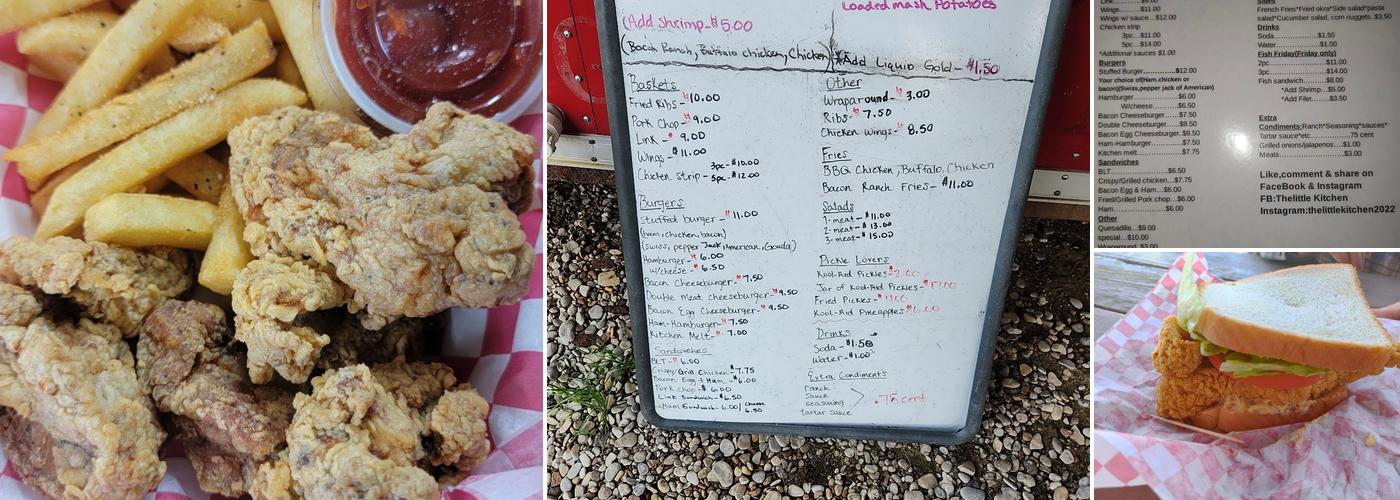 (Add Shrimp-$5.00
Loaded mash Potatoes
(Bacon Ranch, Buffalo chicken, Chicken)
*Add Liquid Gold-$1.50
Baskets
Fried Ribs-$10.00
Pork Chop-$9.00
Link-$9.00
Wings-$11.00
3pc-$10.00
Chicken Strip-5pc-$12.00
Burgers
Stuffed burger-$11.00
(ham, chicken, bacon)
(swiss, pepper Jack, American, Gouda)
Hamburger-$6.00
w/cheese-$6.50
Bacon Cheeseburger-$7.50
Double Meat Cheeseburger-$9.50
Bacon Egg Cheeseburger-$9.50
Ham-Hamburger-$7.50
Kitchen Melt-$7.00
Sandwiches
BLT-$6.00
Crispy/Grill Chicken-$7.75
Bacon Egg + Ham-$6.00
Pork chop-$6.00
Link Sandwich-$6.50
Ham Sandwich-6.00/cheese
6.50
Other
Wraparound-$3.00
Ribs-$7.50
Chicken Wings-$8.50
Fries
BBQ Chicken, Buffalo, Chicken
Bacon Ranch Fries-$11.00
Salads
1-meat-$11.00
2-meat-$13.00
3-meat-$15.00
Pickle Lovers
Kool-Aid Pickles-$2.00
Jar of Kool-Aid Pickles-
Fried Pickles-
Kool-Aid Pineapples-
Drinks
Soda-$1.50
Water-$1.00
Extra Condiments
ranch
Sauce
seasoning
tartar sauce
.75 cent
Wings............$11.00
Wings w/ sauce...$12.00
Chicken strip
3pc....$11.00
5pc....$14.00
*Additional sauces $1.00
Burgers
Stuffed Burger...............$12.00
Your choice of(Ham,chicken or
bacon)(Swiss,pepper jack of American)
Hamburger....................$6.00
W/cheese................$6.50
Bacon Cheeseburger.......$7.50
Double Cheeseburger......$9.50
Bacon Egg Cheeseburger..$9.50
Ham Hamburger.............$7.50
Kitchen melt..................$7.75
Sandwiches
BLT...........................$6.50
Crispy/Grilled chicken...$7.75
Bacon Egg & Ham....$6.00
Fried/Grilled Pork chop...$6.00
Ham....................$6.00
Other
Quesadilla...$9.00
special...$10.00
Wraparound $3.00
Sides
French Fries*Fried okra*Side salad*pasta
salad*Cucumber salad, corn nuggets..$3.50
Drinks
Soda.....................$1.50
Water....................$1.00
Fish Friday(Friday only)
2pc.....................$11.00
3pc.....................$14.00
Fish sandwich.........$8.00
*Add Shrimp...$5.00
*Add Filet......$3.50
Extra
Condiments:Ranch*Seasoning*sauces*
Tartar sauce*etc...............75 cent
Grilled onions/jalapenos....$1.00
Meats..........................$3.00
Like,comment & share on
FaceBook & Instagram
FB:Thelittle Kitchen
Instagram:thelittlekitchen2022